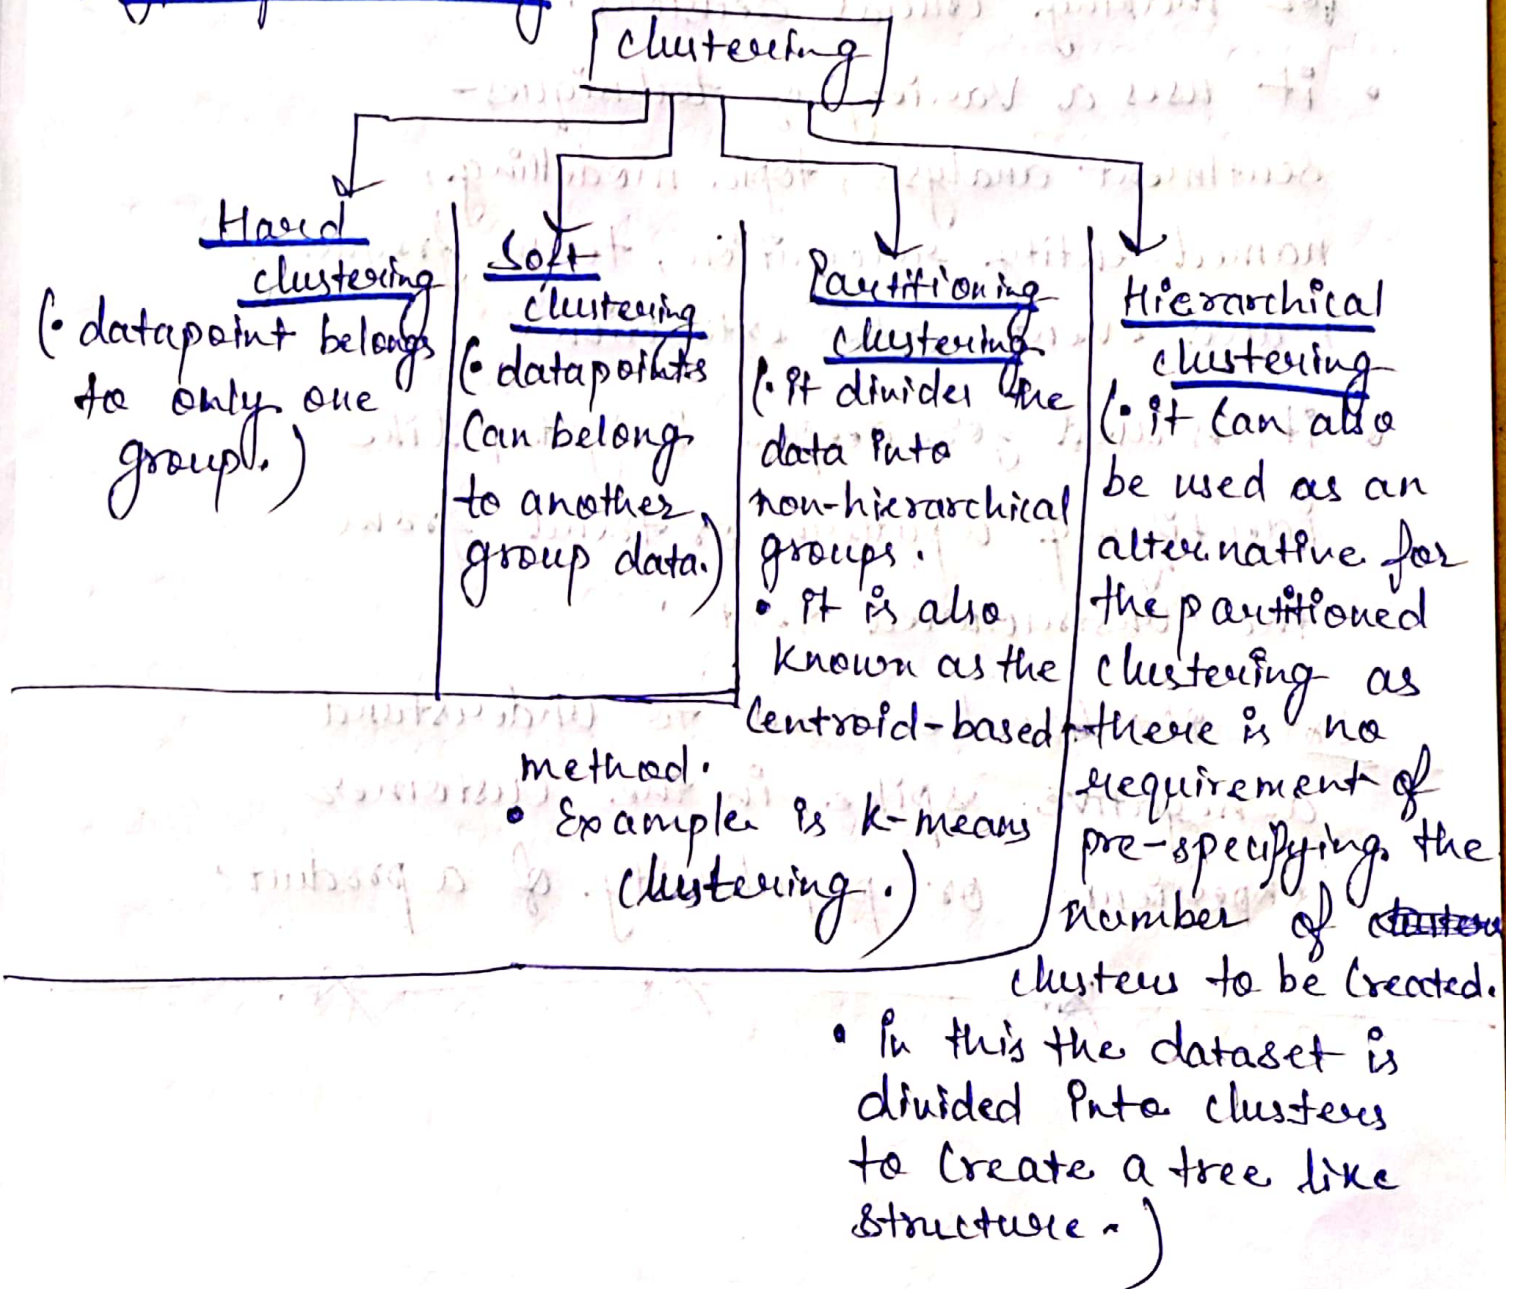 clustering
Hard
clustering
(• datapoint belongs
to only one
group.)
Soft
clustering
(• datapoints
Can belong
to another
group data.)
Partitioning
clustering
(• it divides the
data into
non-hierarchical
groups.
• it is also
known as the
Centroid-based
method.
• Example is k-means
clustering.)
Hierarchical
clustering
(• it Can also
be used as an
alternative for
the partitioned
clustering as
there is no
requirement of
pre-specifying the
number of
clusters to be Created.
• in this the dataset is
divided into clusters
to Create a tree like
structure.)